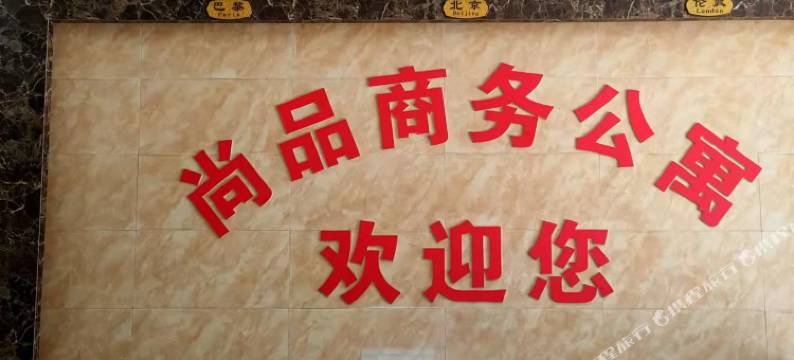 巴黎 北京 伦敦
Paris Beijing London
尚品商务公寓
欢迎您
携程旅行 携程旅行